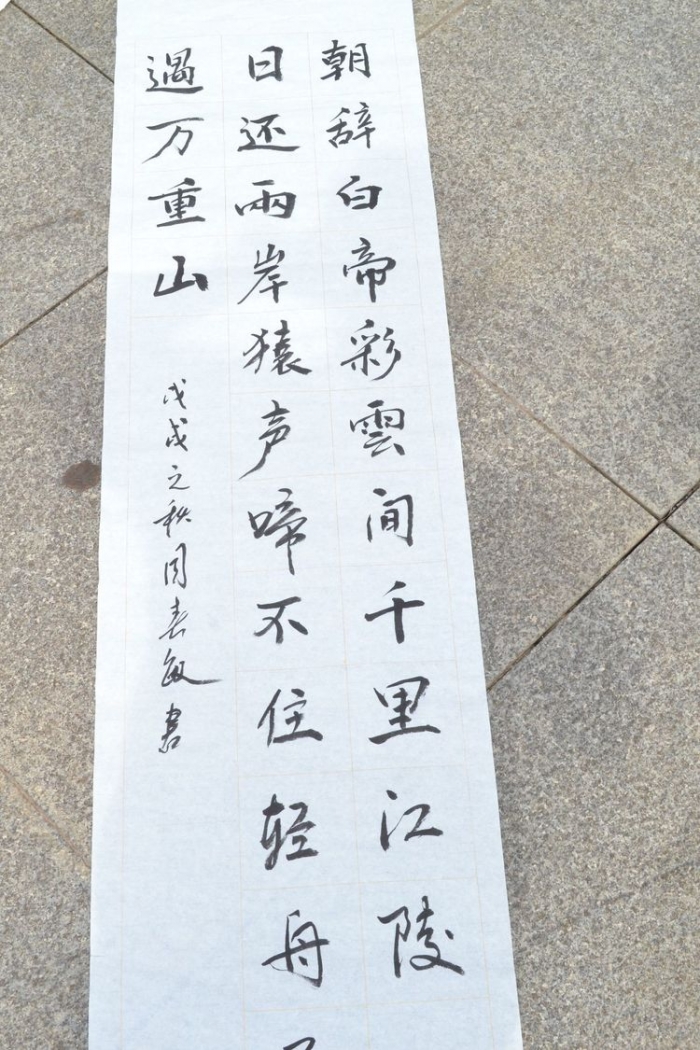 朝辞白帝彩雲间千里江陵
日还兩岸猿声啼不住轻舟
過万重山
戊戌之秋周春敏書